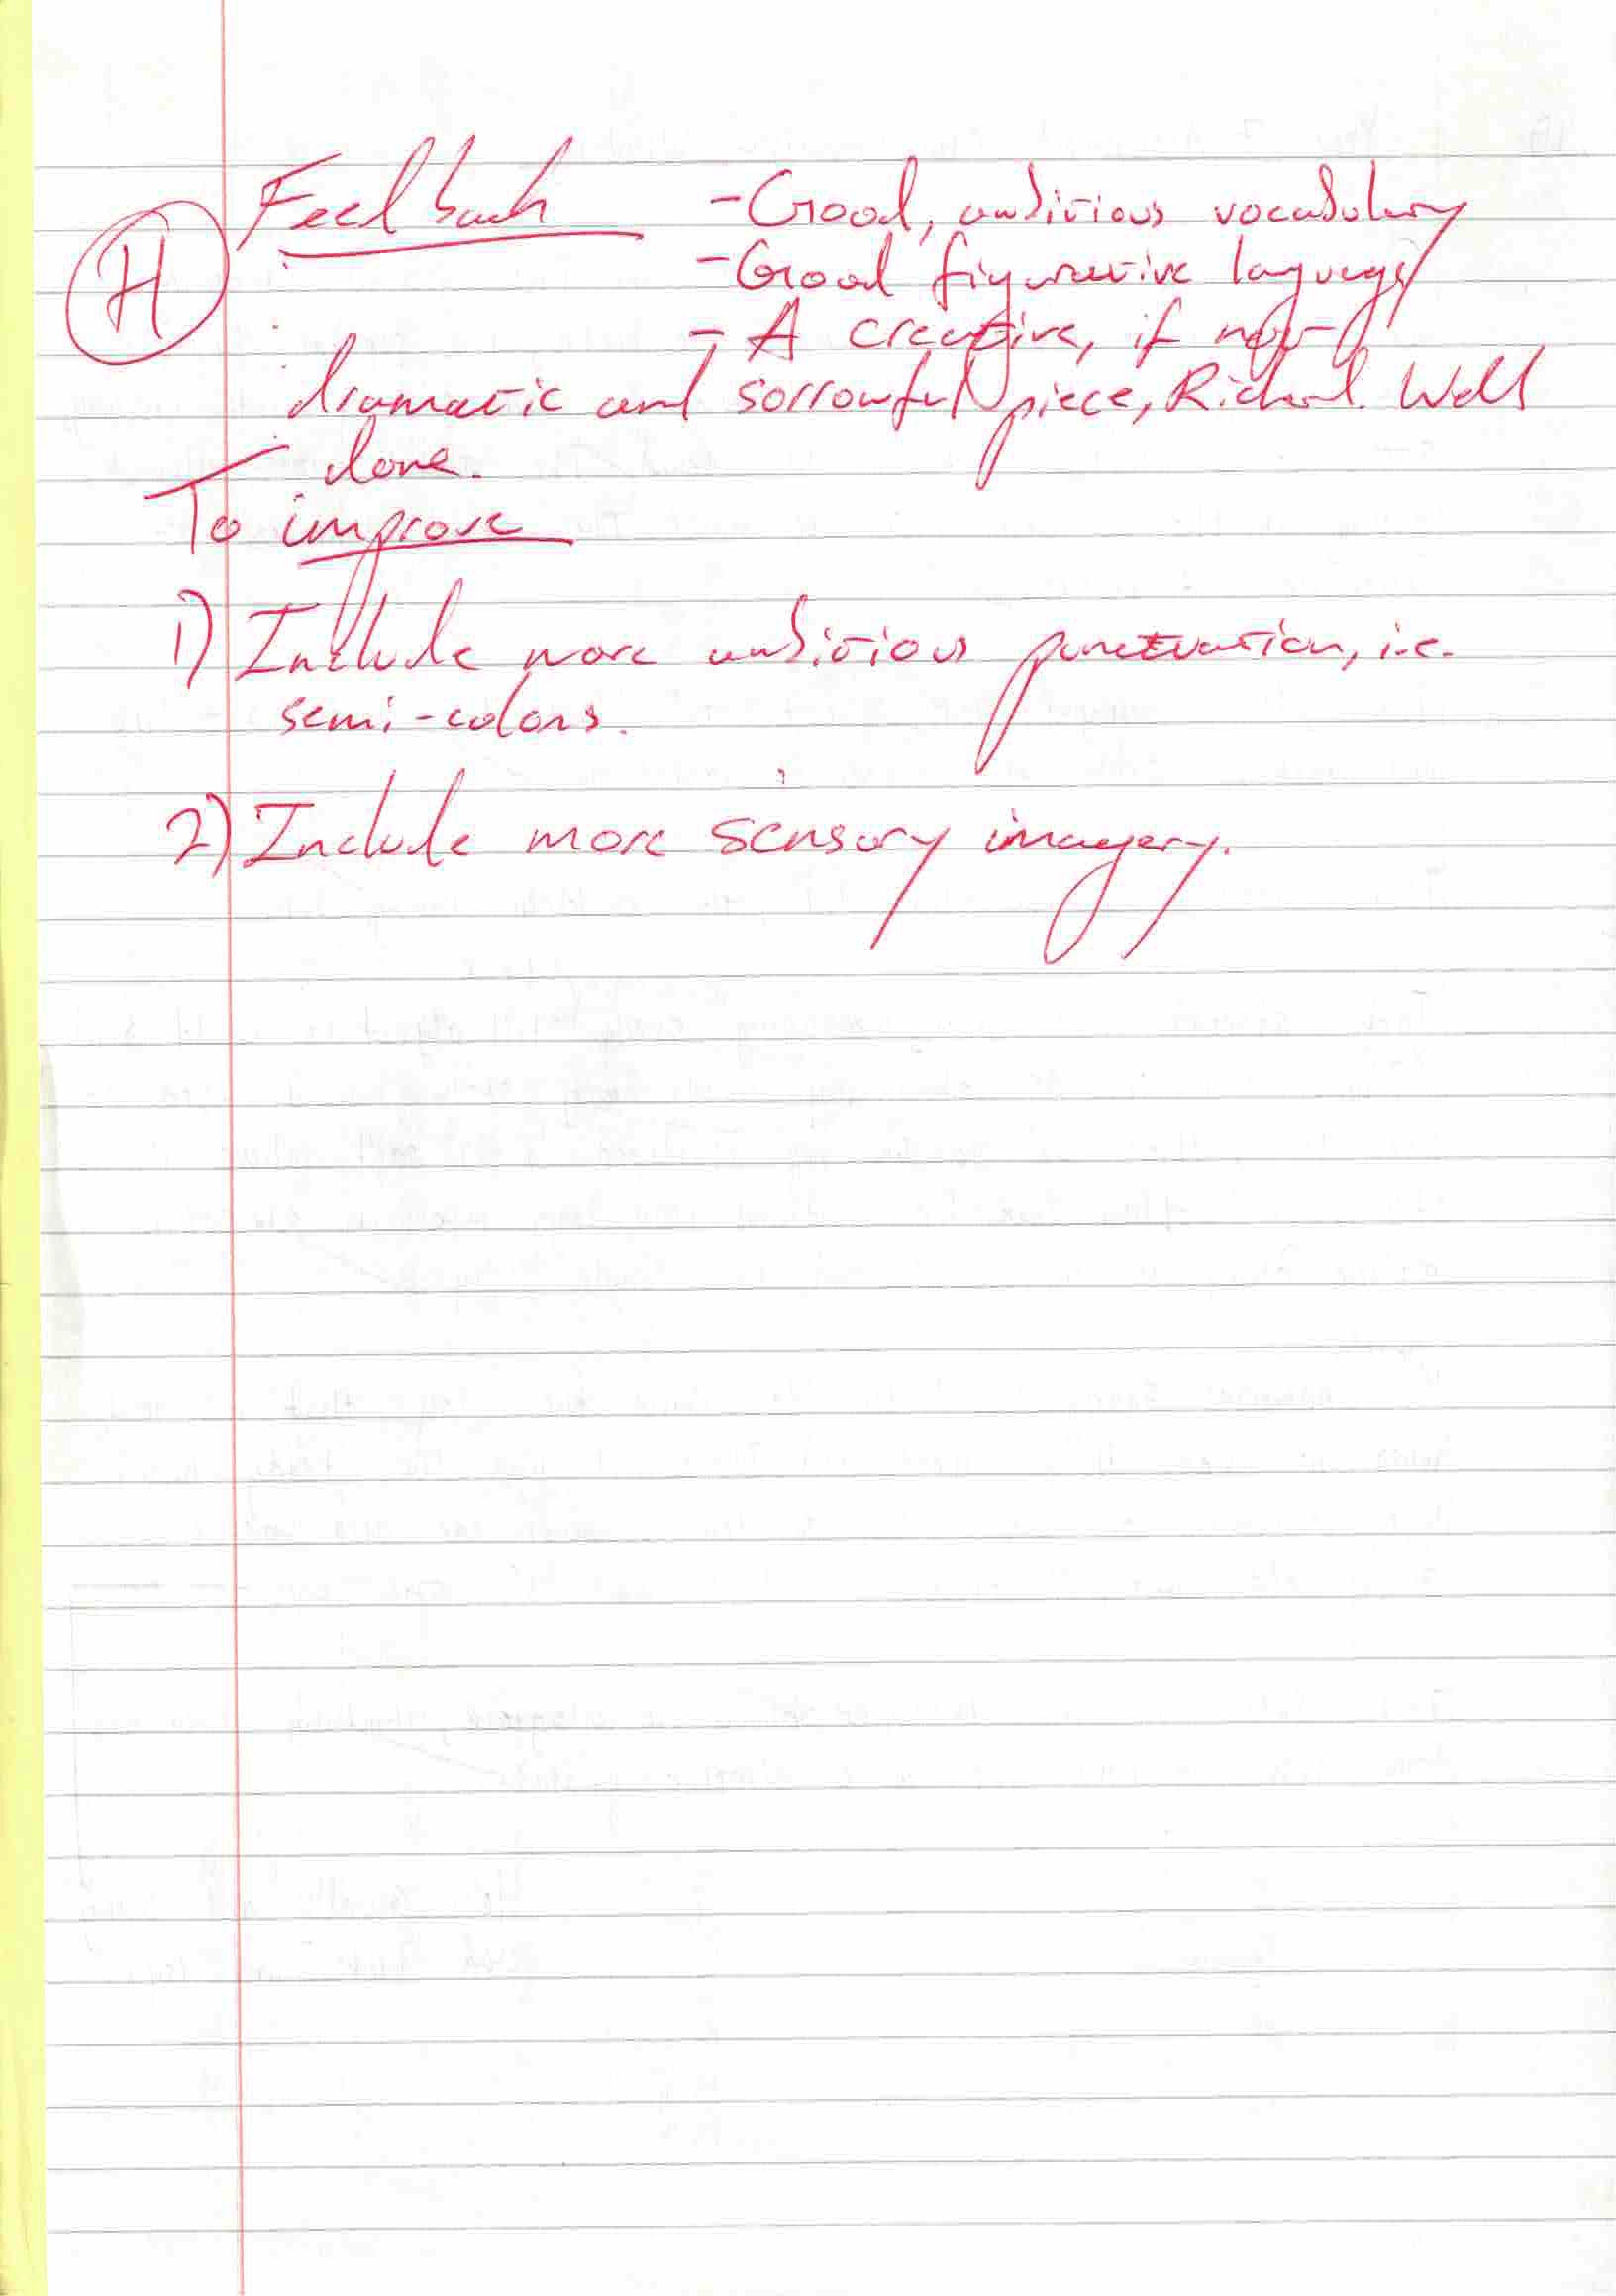 Feedback - Good, ambitious vocabulary
H - Good figurative language
- A creative, if not
dramatic and sorrowful piece, Richard. Well
done.
To improve
1) Include more ambitious punctuation, i.e.
semi-colons.
2) Include more sensory imagery.